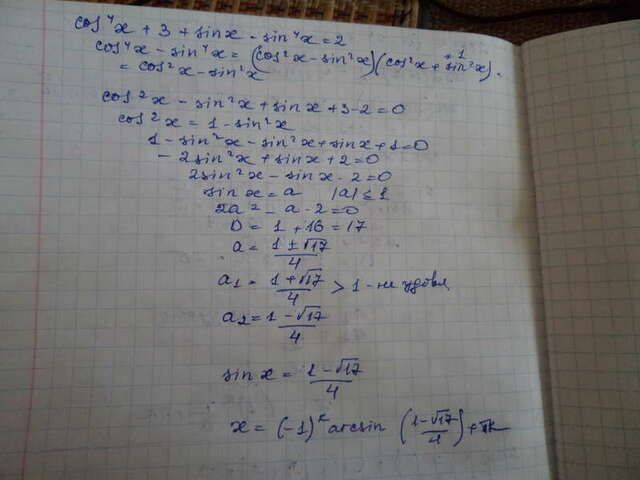 cos⁴x + 3 + sinx - sin⁴x = 2
cos⁴x - sin⁴x = (cos²x - sin²x)(cos²x + sin²x) = 1
= cos²x - sin²x
cos²x - sin²x + sinx + 3 - 2 = 0
cos²x = 1 - sin²x
1 - sin²x - sin²x + sinx + 1 = 0
- 2sin²x + sinx + 2 = 0
2sin²x - sinx - 2 = 0
sin x = a |a| ≤ 1
2a² - a - 2 = 0
D = 1 + 16 = 17
a = (1 ± √17)/4
a₁ = (1 + √17)/4 > 1 - не удовл.
a₂ = (1 - √17)/4
sin x = (1 - √17)/4
x = (-1)ᵏ arcsin ((1 - √17)/4) + πk